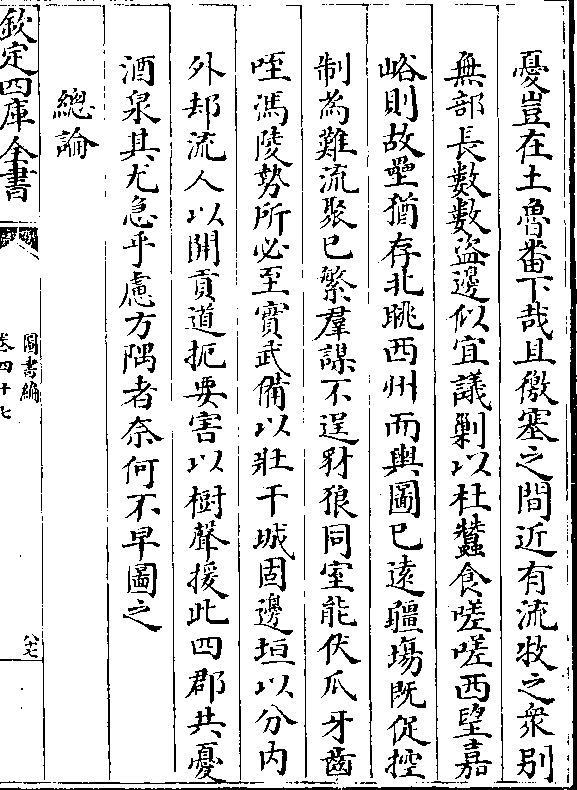 憂豈在土魯畨下哉且徼塞之間近有流牧之衆别
無部長數數盗邊似宜議剿以杜蠶食嗟嗟西望嘉
峪則故壘猶存北眺西州而輿圖已遠疆塲既促控
制為難流聚已繁羣謀不逞豺狼同室能伏爪牙齒
咥馮陵勢所必至實武備以壯干城固邊垣以分内
外却流人以開貢道扼要害以樹聲援此四郡共憂
酒泉其尤急乎慮方隅者奈何不早圖之
總論
欽定四庫全書
圖書編
卷四十七
六七